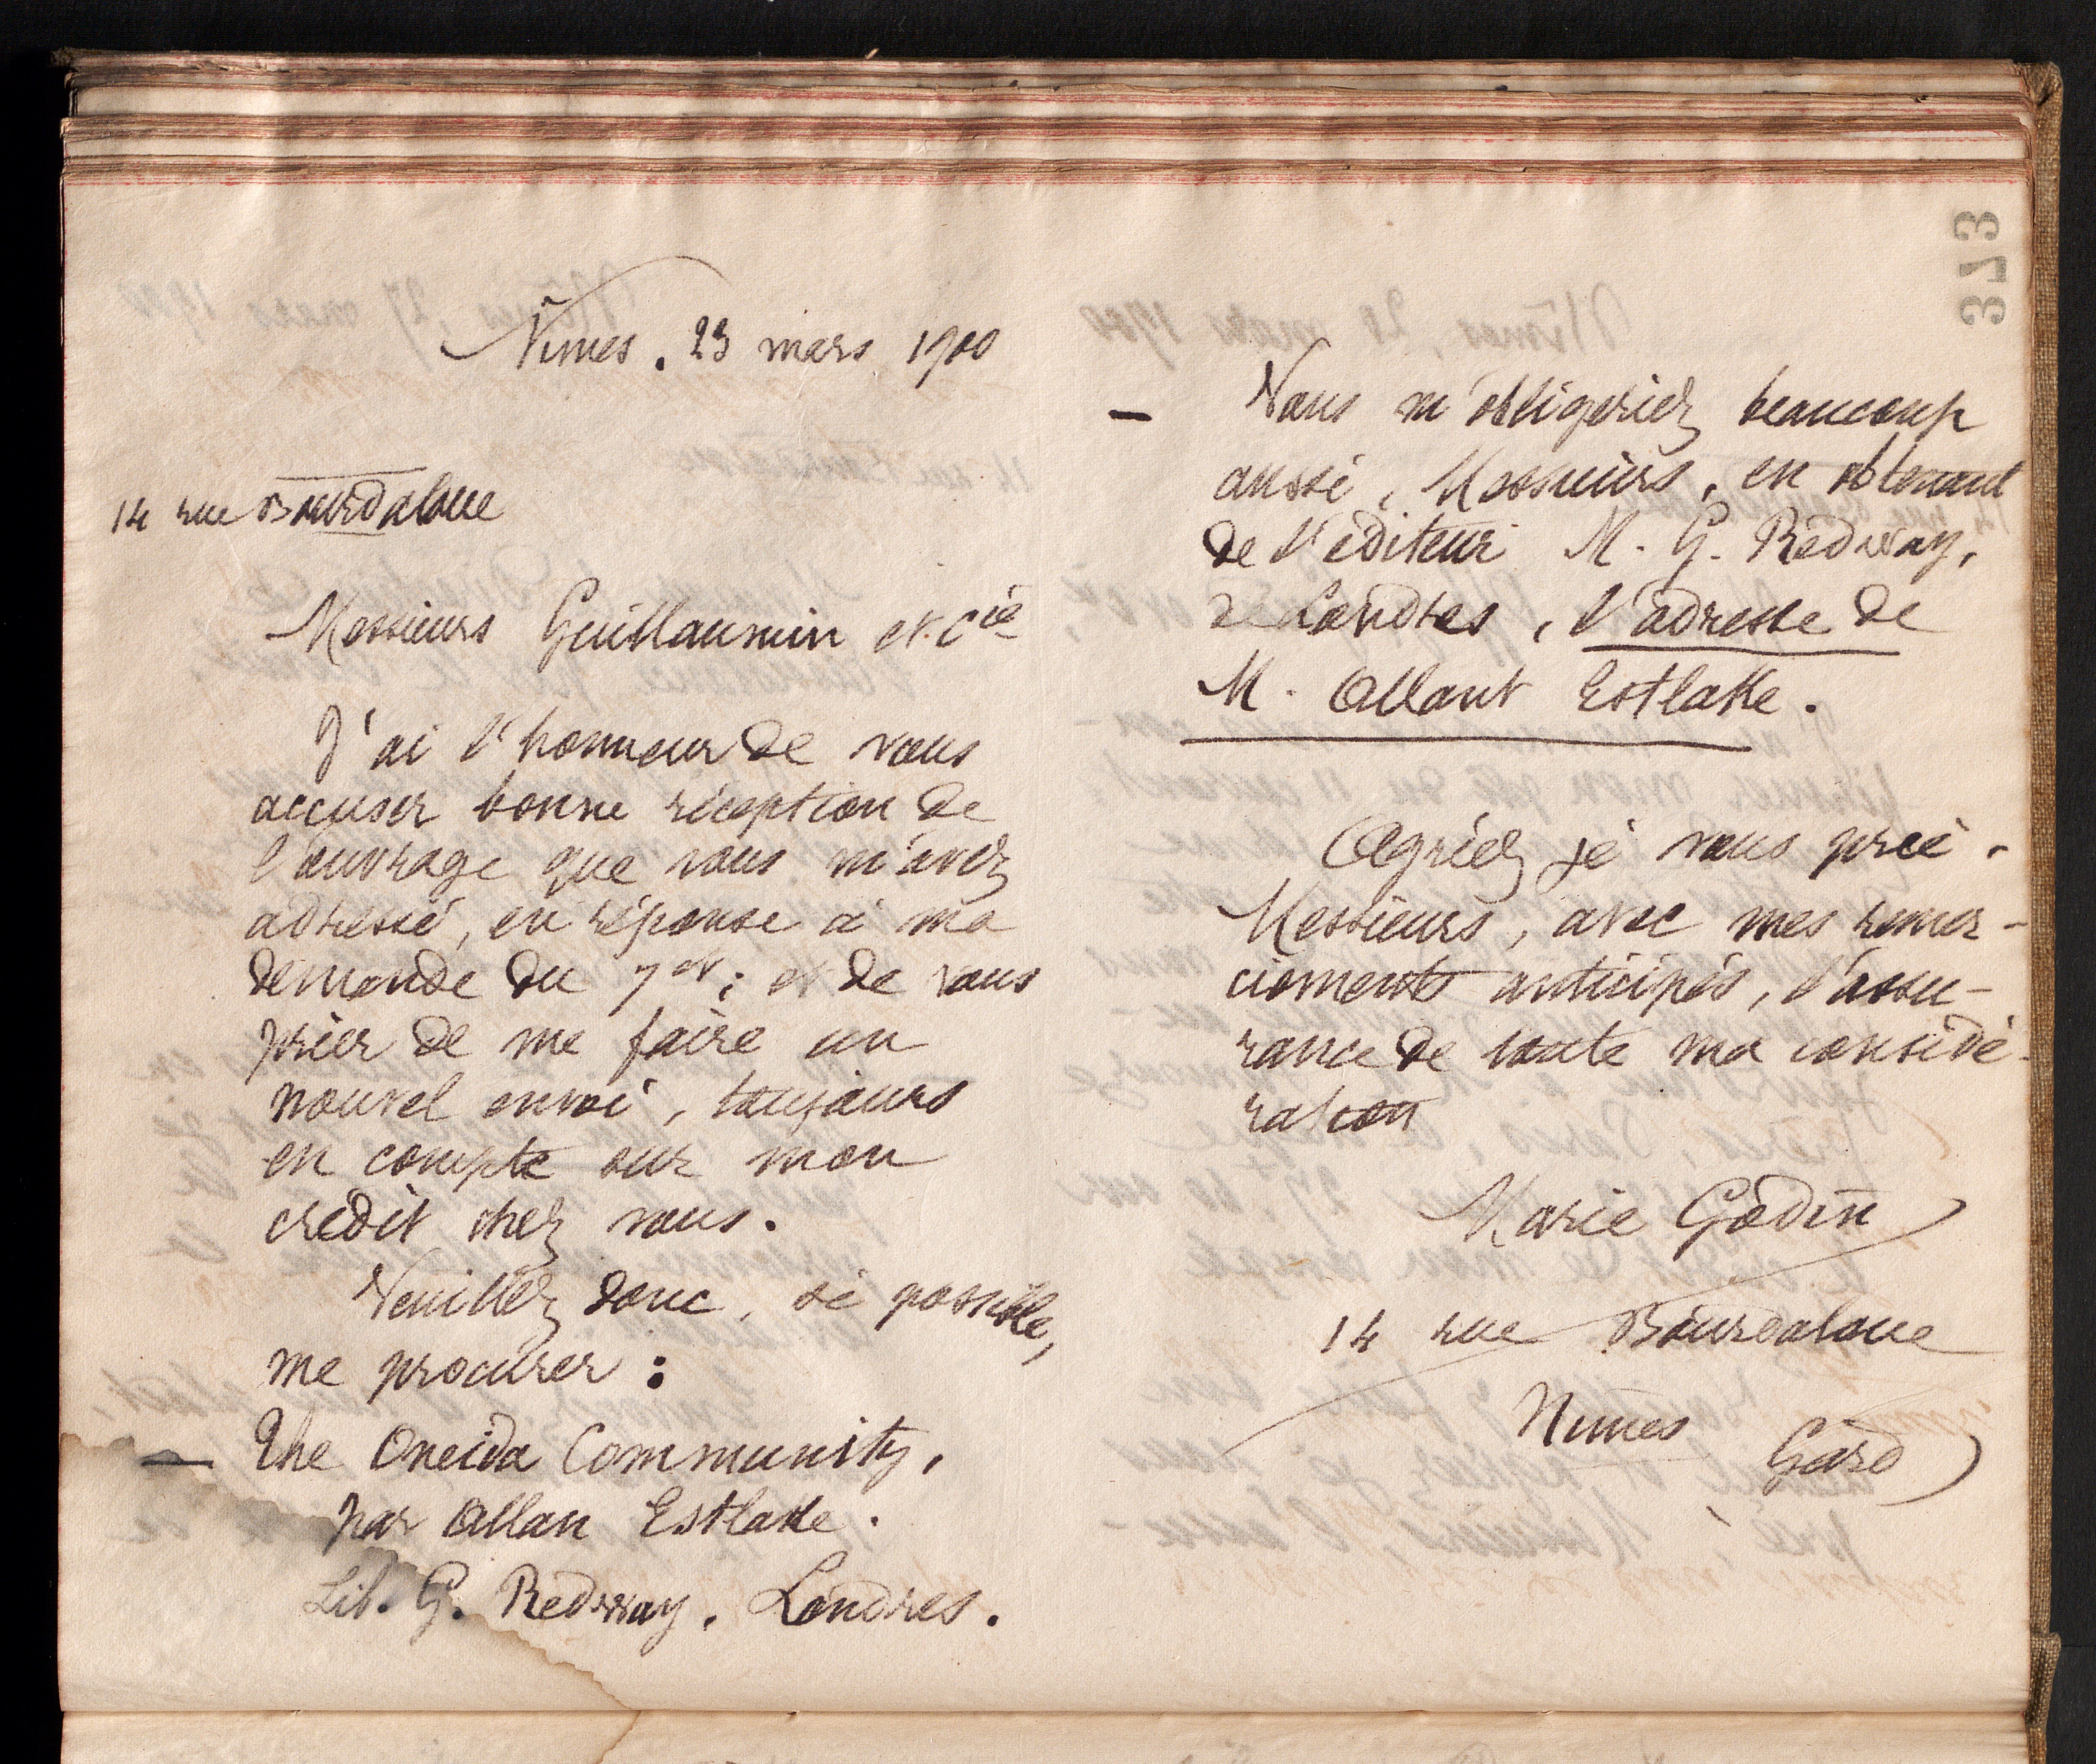 Nîmes. 23 mars 1900
14 rue Bourdaloue
Messieurs Guillaumin et Cie
J'ai l'honneur de vous
accuser bonne réception de
l'ouvrage que vous m'avez
adressé, en réponse à ma
demande du 7 ct; et de vous
prier de me faire un
nouvel envoi, toujours
en compte sur mon
crédit chez vous.
Veuillez donc, si possible,
me procurer :
— The Oneida Community,
par Allan Estlake.
Lib. G. Redway. Londres.
373
— Vous m'obligeriez beaucoup
aussi, Messieurs, en obtenant
de l'éditeur M. G. Redway,
de Londres, l'adresse de
M. Allant Estlake.
Agréez je vous prie.
Messieurs, avec mes remer-
ciements anticipés, l'assu-
rance de toute ma considé-
ration
Marie Godin
14 rue Bourdaloue
Nîmes
Gard